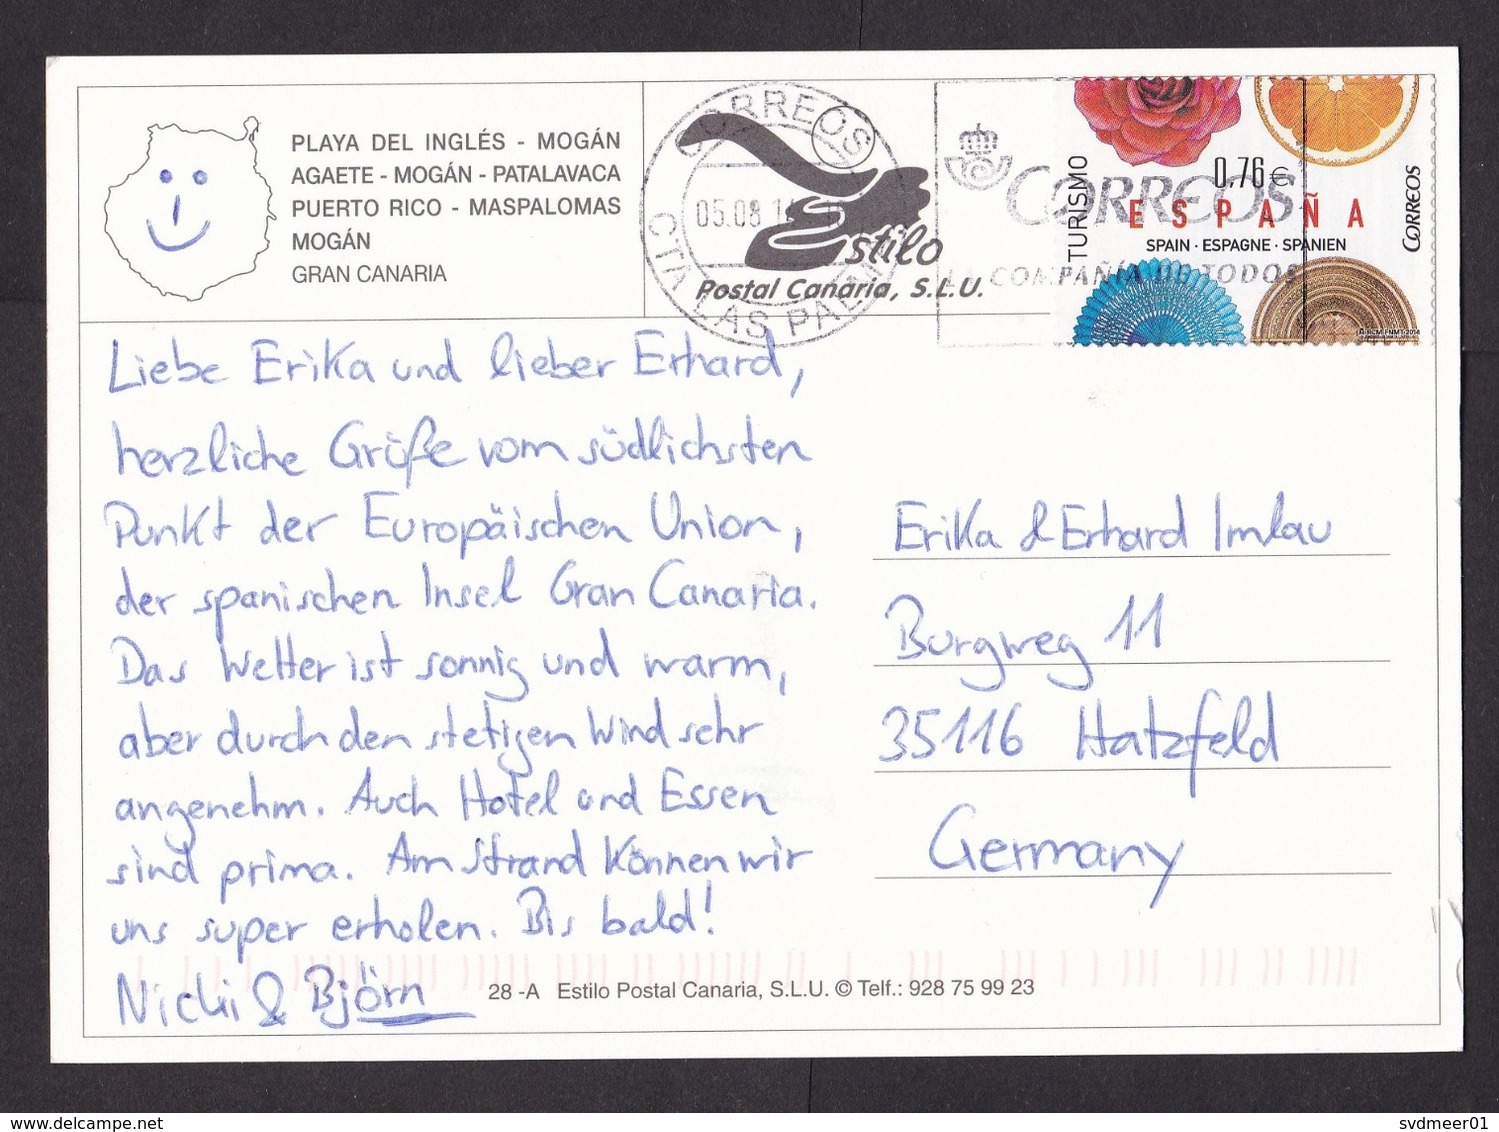 PLAYA DEL INGLÉS - MOGÁN
AGAETE - MOGÁN - PATALAVACA
PUERTO RICO - MASPALOMAS
MOGÁN
GRAN CANARIA
CORREOS
05.08.14
CTA LAS PALMAS
Estilo
Postal Canaria, S.L.U.
CORREOS
LA COMPAÑÍA DE TODOS
TURISMO
0,76€
ESPAÑA
SPAIN · ESPAGNE · SPANIEN
CORREOS
Liebe Erika und lieber Erhard,
herzliche Grüße vom südlichsten
Punkt der Europäischen Union,
der spanischen Insel Gran Canaria.
Das Wetter ist sonnig und warm,
aber durch den stetigen Wind sehr
angenehm. Auch Hotel und Essen
sind prima. Am Strand können wir
uns super erholen. Bis bald!
Nicki & Björn
Erika & Erhard Imlau
Burgweg 11
35116 Hatzfeld
Germany
28 -A Estilo Postal Canaria, S.L.U. © Telf.: 928 75 99 23
svdmeer01